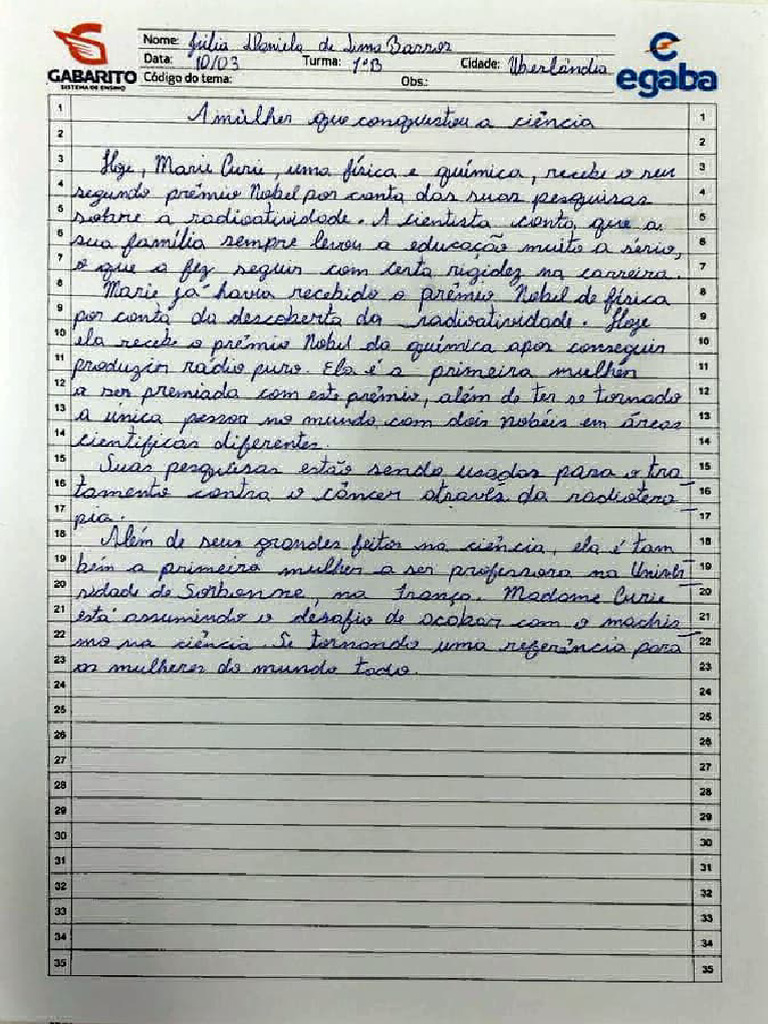 GABARITO
SISTEMA DE ENSINO
Nome: Júlia Daniela de Lima Barros
Data: 10/03 Turma: 1ºB Cidade: Uberlândia
Código do tema: Obs.:
egaba
1 A mulher que conquistou a ciência 1
2 2
3 Hoje, Marie Curie, uma física e química, recebe o seu 3
4 segundo prêmio Nobel por conta das suas pesquisas 4
5 sobre a radioatividade. A cientista conta que a 5
6 sua família sempre levou a educação muito a sério, 6
7 o que a fez seguir com certa rigidez na carreira. 7
8 Marie já havia recebido o prêmio Nobel de física 8
9 por conta da descoberta da radioatividade. Hoje 9
10 ela recebe o prêmio Nobel da química após conseguir 10
11 produzir rádio puro. Ela é a primeira mulher 11
12 a ser premiada com este prêmio, além de ter se tornado 12
13 a única pessoa no mundo com dois nobéis em áreas 13
14 científicas diferentes. 14
15 Suas pesquisas estão sendo usadas para o tra_ 15
16 tamento contra o câncer através da radiotera_ 16
17 pia. 17
18 Além de seus grandes feitos na ciência, ela é tam_ 18
19 bém a primeira mulher a ser professora na Univer_ 19
20 sidade de Sorbonne, na França. Madame Curie 20
21 está assumindo o desafio de acabar com o machis_ 21
22 mo na ciência. Se tornando uma referência para 22
23 as mulheres do mundo todo. 23
24 24
25 25
26 26
27 27
28 28
29 29
30 30
31 31
32 32
33 33
34 34
35 35